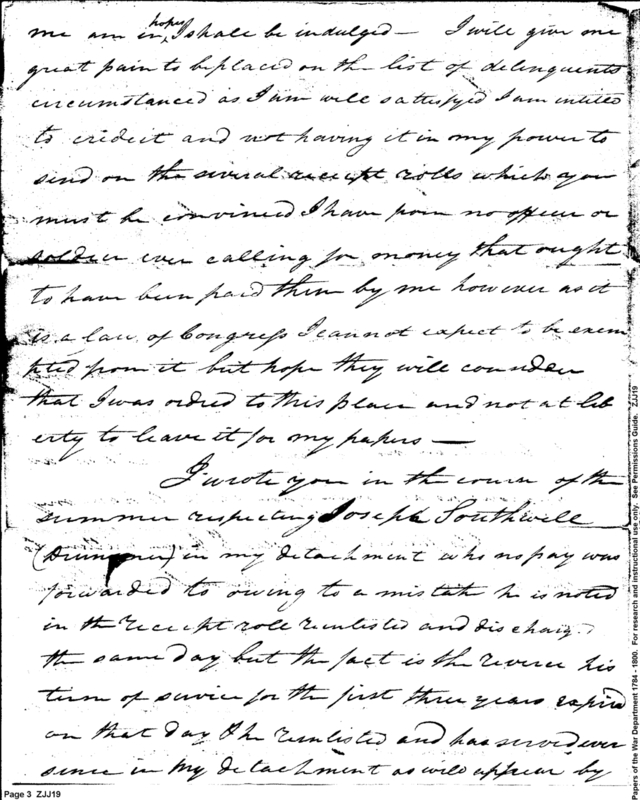 me am in hopes I shall be indulged — I will give me
great pain to be placed on the list of delinquents
circumstanced as I am well satisfyed I am intitled
to credit and not having it in my power to
send on the several receipt rolls which you
must be convinced I have from no officer or
soldier ever calling for money that ought
to have been paid them by me however as it
is a law of Congress I cannot expect to be exem
pted from it but hope they will consider
that I was ordred to this place and not at lib
erty to leave it for my papers —
I wrote you in the course of the
summer respecting Joseph Southwell
(Drummer) in my detachment who no pay was
forwarded to owing to a mistake he is noted
in the receipt role reinlisted and discharg.d
the same day but the fact is the reverce his
term of service for the first three years expired
on that day & he reinlisted and has served ever
sence in my detachment as will appear by
Page 3 ZJJ19
Papers of the War Department 1784 - 1800. For research and instructional use only. See Permissions Guide. ZJJ19